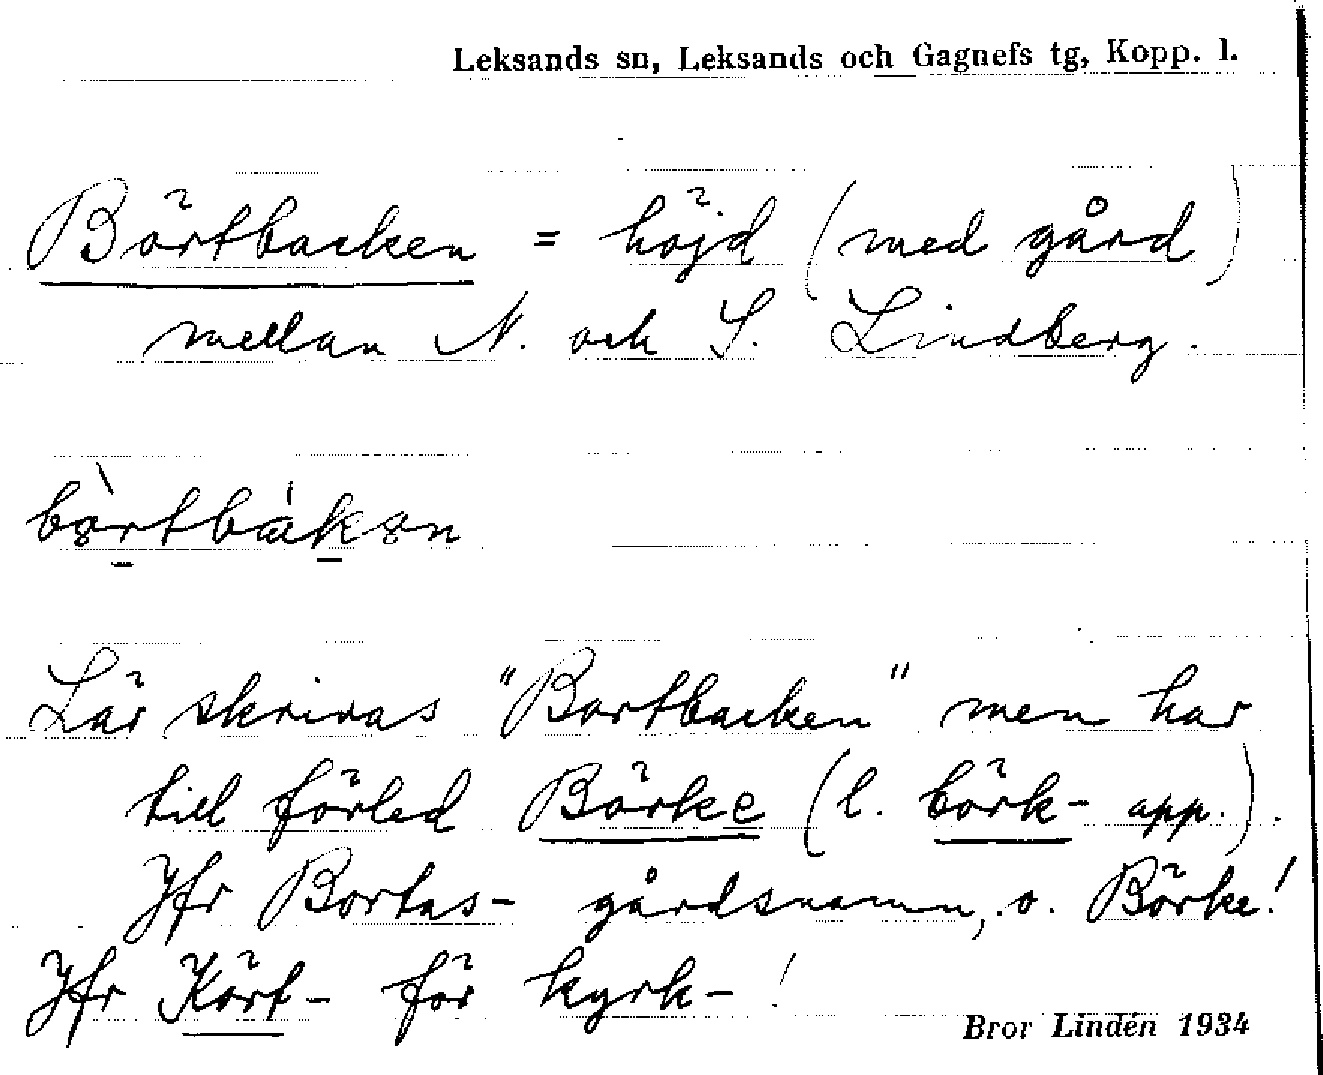 Leksands sn, Leksands och Gagnefs tg, Kopp. l.
Börtbacken = höjd (med gård)
mellan N. och S. Lindberg.
Lär skrivas "Bortbacken" men har
till förled Börke (l. börk- app.).
Jfr Bortas- gårdsnamn, o. Börke!
Jfr Kört- för kyrk-!
Bror Lindén 1934